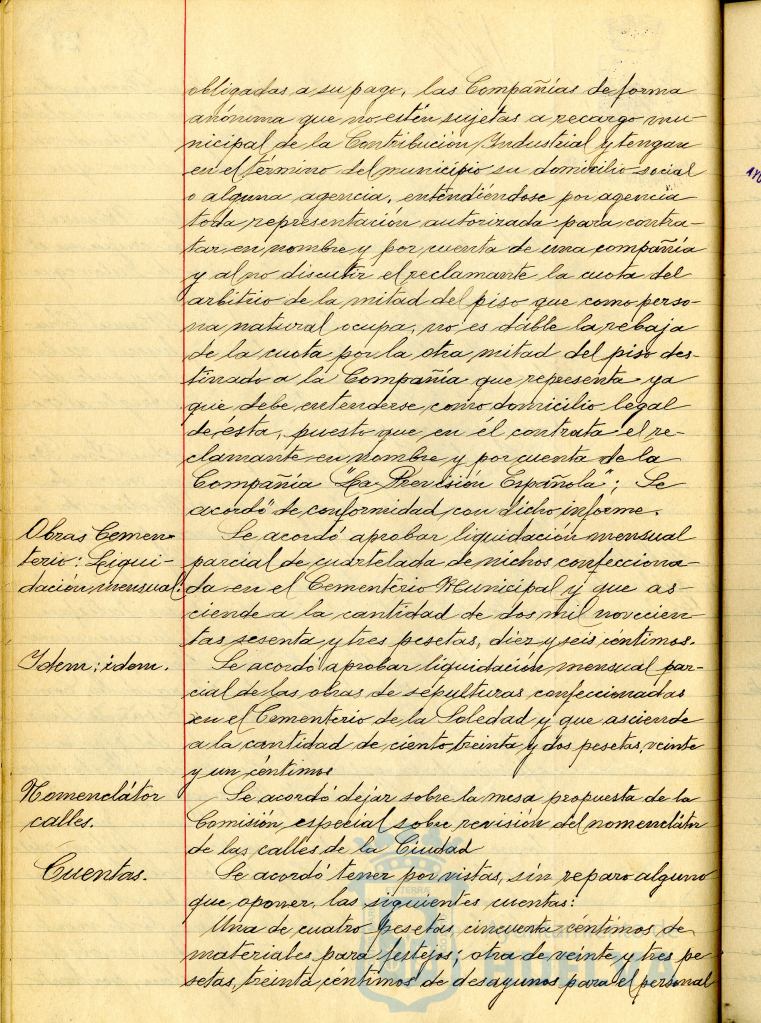 obligadas a su pago, las Compañías de forma
anónima que no estén sujetas a recargo mu-
nicipal de la Contribución Industrial y tengan
en el término del municipio su domicilio social
o alguna agencia, entendiéndose por agencia
toda representación autorizada para contra-
tar en nombre y por cuenta de una compañía
y al no discutir el reclamante la cuota del
arbitrio de la mitad del piso que como perso-
na natural ocupa, no es dable la rebaja
de la cuota por la otra mitad del piso des-
tinado a la Compañía que representa ya
que debe entenderse como domicilio legal
de ésta, puesto que en él contrata el re-
clamante en nombre y por cuenta de la
Compañía "La Previsión Española"; Se
acordó de conformidad con dicho informe.
Obras Cemen-
terio: Liqui-
dación mensual:
Se acordó aprobar liquidación mensual
parcial de cuartelada de nichos confecciona-
da en el Cementerio Municipal y que as-
ciende a la cantidad de dos mil novecien-
tas sesenta y tres pesetas, diez y seis céntimos.
Idem: idem.
Se acordó aprobar liquidación mensual par-
cial de las obras de sepulturas confeccionadas
en el Cementerio de la Soledad y que asciende
a la cantidad de ciento treinta y dos pesetas, veinte
y un céntimos
Nomenclátor
calles.
Se acordó dejar sobre la mesa propuesta de la
Comisión especial sobre revisión del nomenclátor
de las calles de la Ciudad
Cuentas.
Se acordó tener por vistas, sin reparo alguno
que oponer, las siguientes cuentas:
Una de cuatro pesetas, cincuenta céntimos de
materiales para festejos; otra de veinte y tres pe
setas, treinta céntimos de desayunos para el personal
Ayuntamiento de
HUELVA